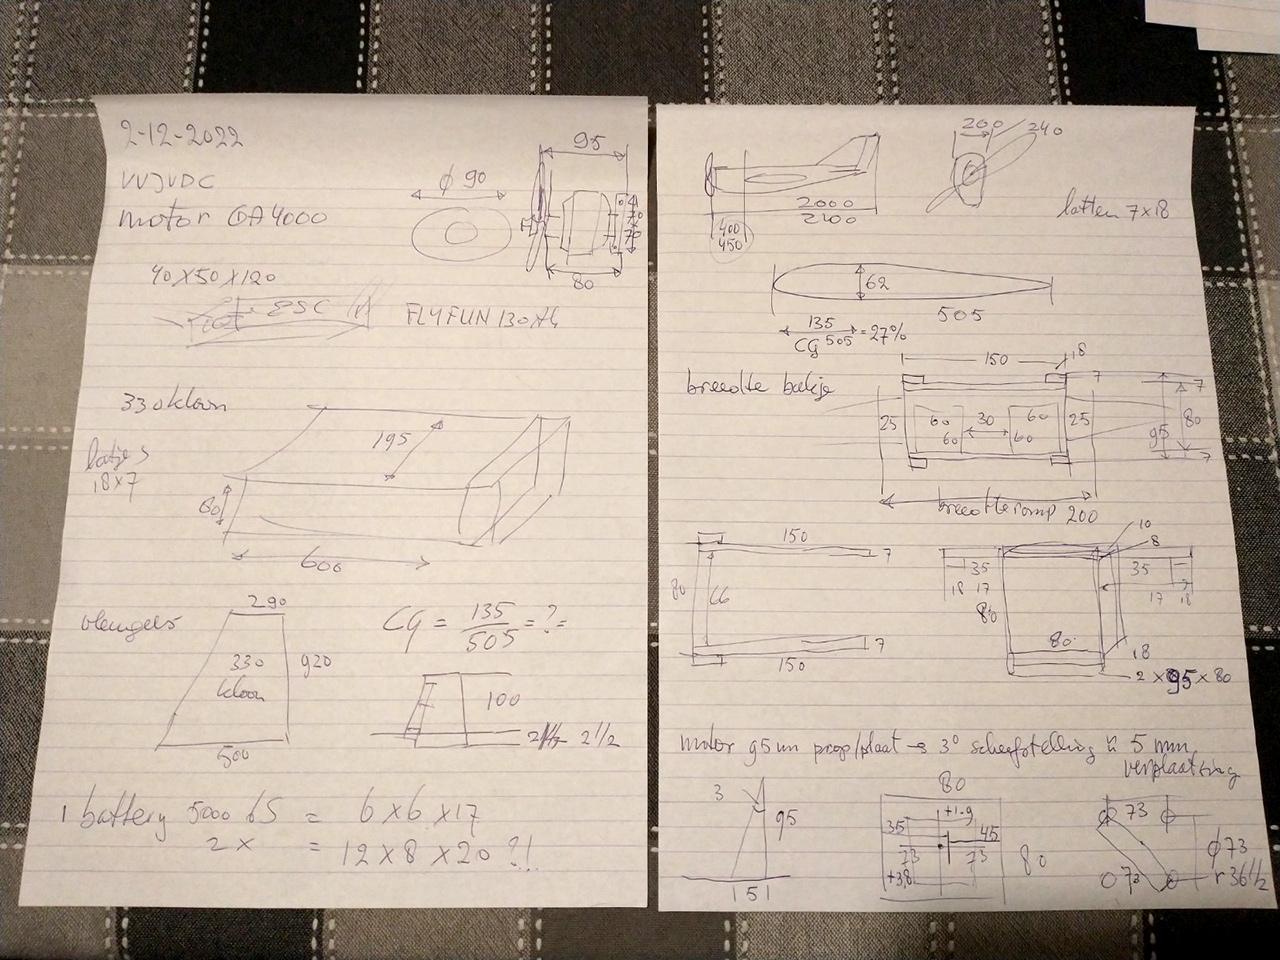 2-12-2022
95
VVJVDC
ϕ 90
motor QA4000
70
70
80
40X50X120
ESC
FLYFUN 130A
330 kloon
195
latjes
18x7
80
600
vleugels
290
CG = 135/505 = ? =
330
kloon
920
100
500
2 1/2
1 battery 5000 6S = 6 x 6 x 17
2 x = 12 x 8 x 20 ?!
200
240
2000
2100
latten 7x18
400
450
62
505
135
CG 505 = 27%
150
18
breedte bakje
7
7
25
60
30
60
25
80
60
60
95
7
breedte romp 200
150
7
10
8
80
66
35
35
18 17
17 18
80
80
7
150
18
2 x 95 x 80
motor 95 mm prop/plaat → 3° scheefstelling is 5 mm
verplaatsing
80
3
95
+1.9
35
45
73
73
80
+3,8
151
73
ϕ73
73
r 36 1/2